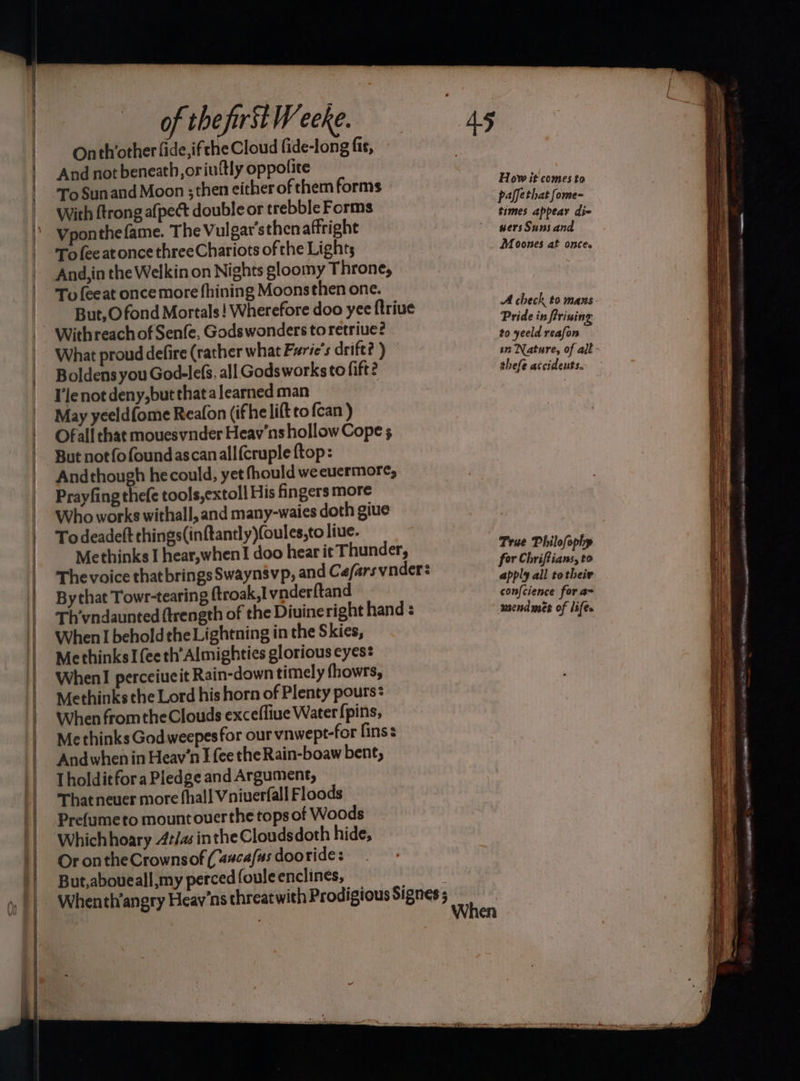 of the first Weeke.
45
On th'other side, if the Cloud side-long sit,
And not beneath, or iustly opposite
To Sun and Moon ; then either of them forms
With strong aspect double or trebble Forms
Vpon the same. The Vulgar's then affright
To see at once three Chariots of the Light;
And, in the Welkin on Nights gloomy Throne,
To see at once more shining Moons then one.
But, O fond Mortals ! Wherefore doo yee striue
With reach of Sense, Gods wonders to retriue ?
What proud desire (rather what Furie's drift ? )
Boldens you God-less, all Gods works to sift ?
I'le not deny, but that a learned man
May yeeld some Reason (if he list to scan )
Of all that moues vnder Heav'ns hollow Cope ;
But not so sound as can all scruple stop :
And though he could, yet should we euermore,
Praysing these tools, extoll His fingers more
Who works withall, and many-waies doth giue
To deadest things (instantly) soules, to liue.
Methinks I hear, when I doo hear it Thunder,
The voice that brings Swayns vp, and Cæsars vnder :
By that Towr-tearing stroak, I vnderstand
Th'vndaunted strength of the Diuine right hand :
When I behold the Lightning in the Skies,
Methinks I see th'Almighties glorious eyes :
When I perceiue it Rain-down timely showrs,
Methinks the Lord his horn of Plenty pours :
When from the Clouds excessiue Water spins,
Methinks God weepes for our vnwept-for sins :
And when in Heav'n I see the Rain-boaw bent,
I hold it for a Pledge and Argument,
That neuer more shall Vniuersall Floods
Presume to mount ouer the tops of Woods
Which hoary Atlas in the Clouds doth hide,
Or on the Crowns of Caucasus doo ride :
But, aboue all, my perced soule enclines,
When th'angry Heav'ns threat with Prodigious Signes ;
When
How it comes to
passe that some-
times appear di-
uers Suns and
Moones at once.
A check to mans
Pride in striuing
to yeeld reason
in Nature, of all
these accidents.
True Philosophy
for Christians, to
apply all to their
conscience for a-
mendmēt of life.